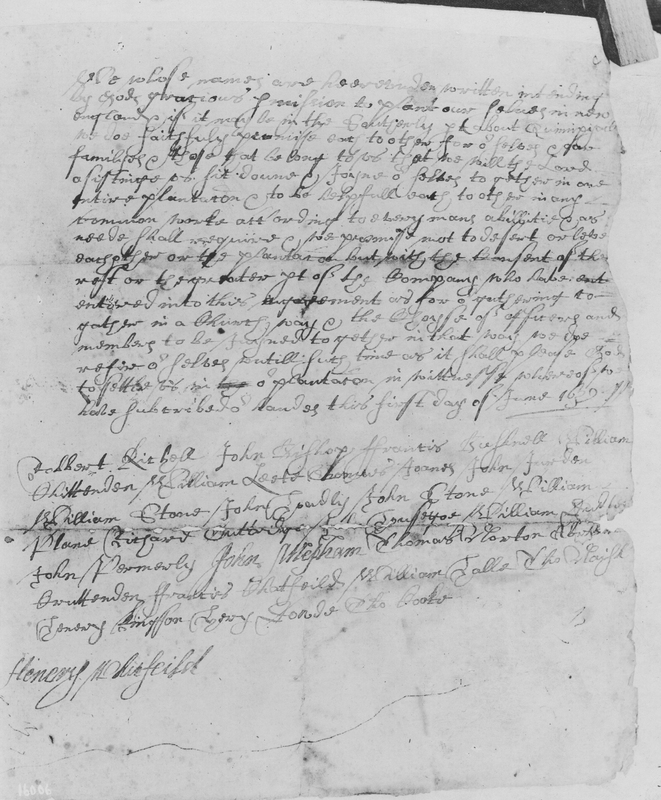 We whose names are heereunder written intending
by Gods gracious pmission to plant our selves in new
england & if it may be in the Southerly pt about Quinnipiack
we doe faithfully promise each to other for or selves & our
families & those that belong to us that we will the Lord
assistinge us sit downe & Joyne or selves together in one
intire plantation & to be helpfull each to other in any
common worke according to every mans abillitie & as
neede shall require & we promise not to desert or leve
each other or the plantation but with the Consent of the
rest or the greater pt of the Company who have ent
entered into this ingagement as for or gathering to
gather in a Church way & the Choyse of officers and
members to be Joyned together in that way we doe
refire or selves untill such time as it shall please God
to settle us in or plantation in wittnesse whereof we
have subscribed or handes this first day of June 1639
Robbert Kitchell John Bishop ffrancis Bushnell William
Chittenden William Leete Thomas Joanes John Jurden
William Stone John Hoadly John Stone William
Plane Richard Guttridge John William Dudly
John Permerly John Mepham Thomas Norton Abraham
Cruttenden ffrancis Chatfeild William Halle Tho Naish
Henery Kingson Hery Doude Tho Cooke
Henery Whitfeild
16006